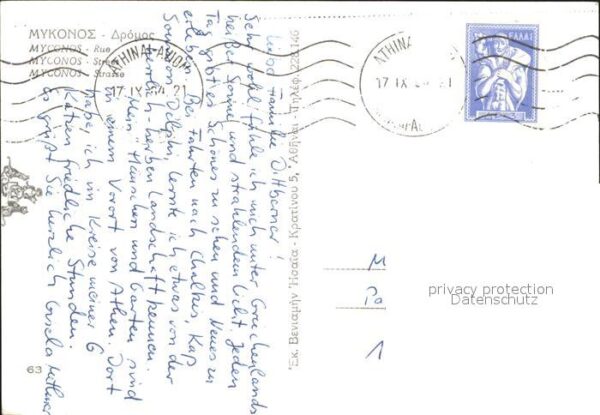 ΜΥΚΟΝΟΣ - Δρόμος
MYCONOS - Rue
MYCONOS - Street
MYCONOS - Strasse
ΑΘΗΝΑΙ
17 IX 64 21
ΑΘΗΝΑΙ
17 IX 21
ΕΛΛΑΣ
Liebe Familie Dittberner!
Sehr wohl fühle ich mich unter Griechenlands
heißer Sonne und strahlendem Licht. Jeden
Tag gibt es Schönes zu sehen und Neues zu
erleben. Bei Fahrten nach Chalkis, Kap
Sounion, Delphi, lernte ich etwas von der
herrlich-herben Landschaft kennen.
"Mein" Häuschen und Garten sind
in einem Vorort von Athen. Dort
habe ich im Kreise meiner 6
Katzen friedliche Stunden.
Es grüßt Sie herzlich Gisela
Ἐκ. Βενιαμὴν Ἠσαΐα - Κρατίνου 5, Ἀθῆναι - Τηλέφ.
M
Po
1
privacy protection
Datenschutz
63